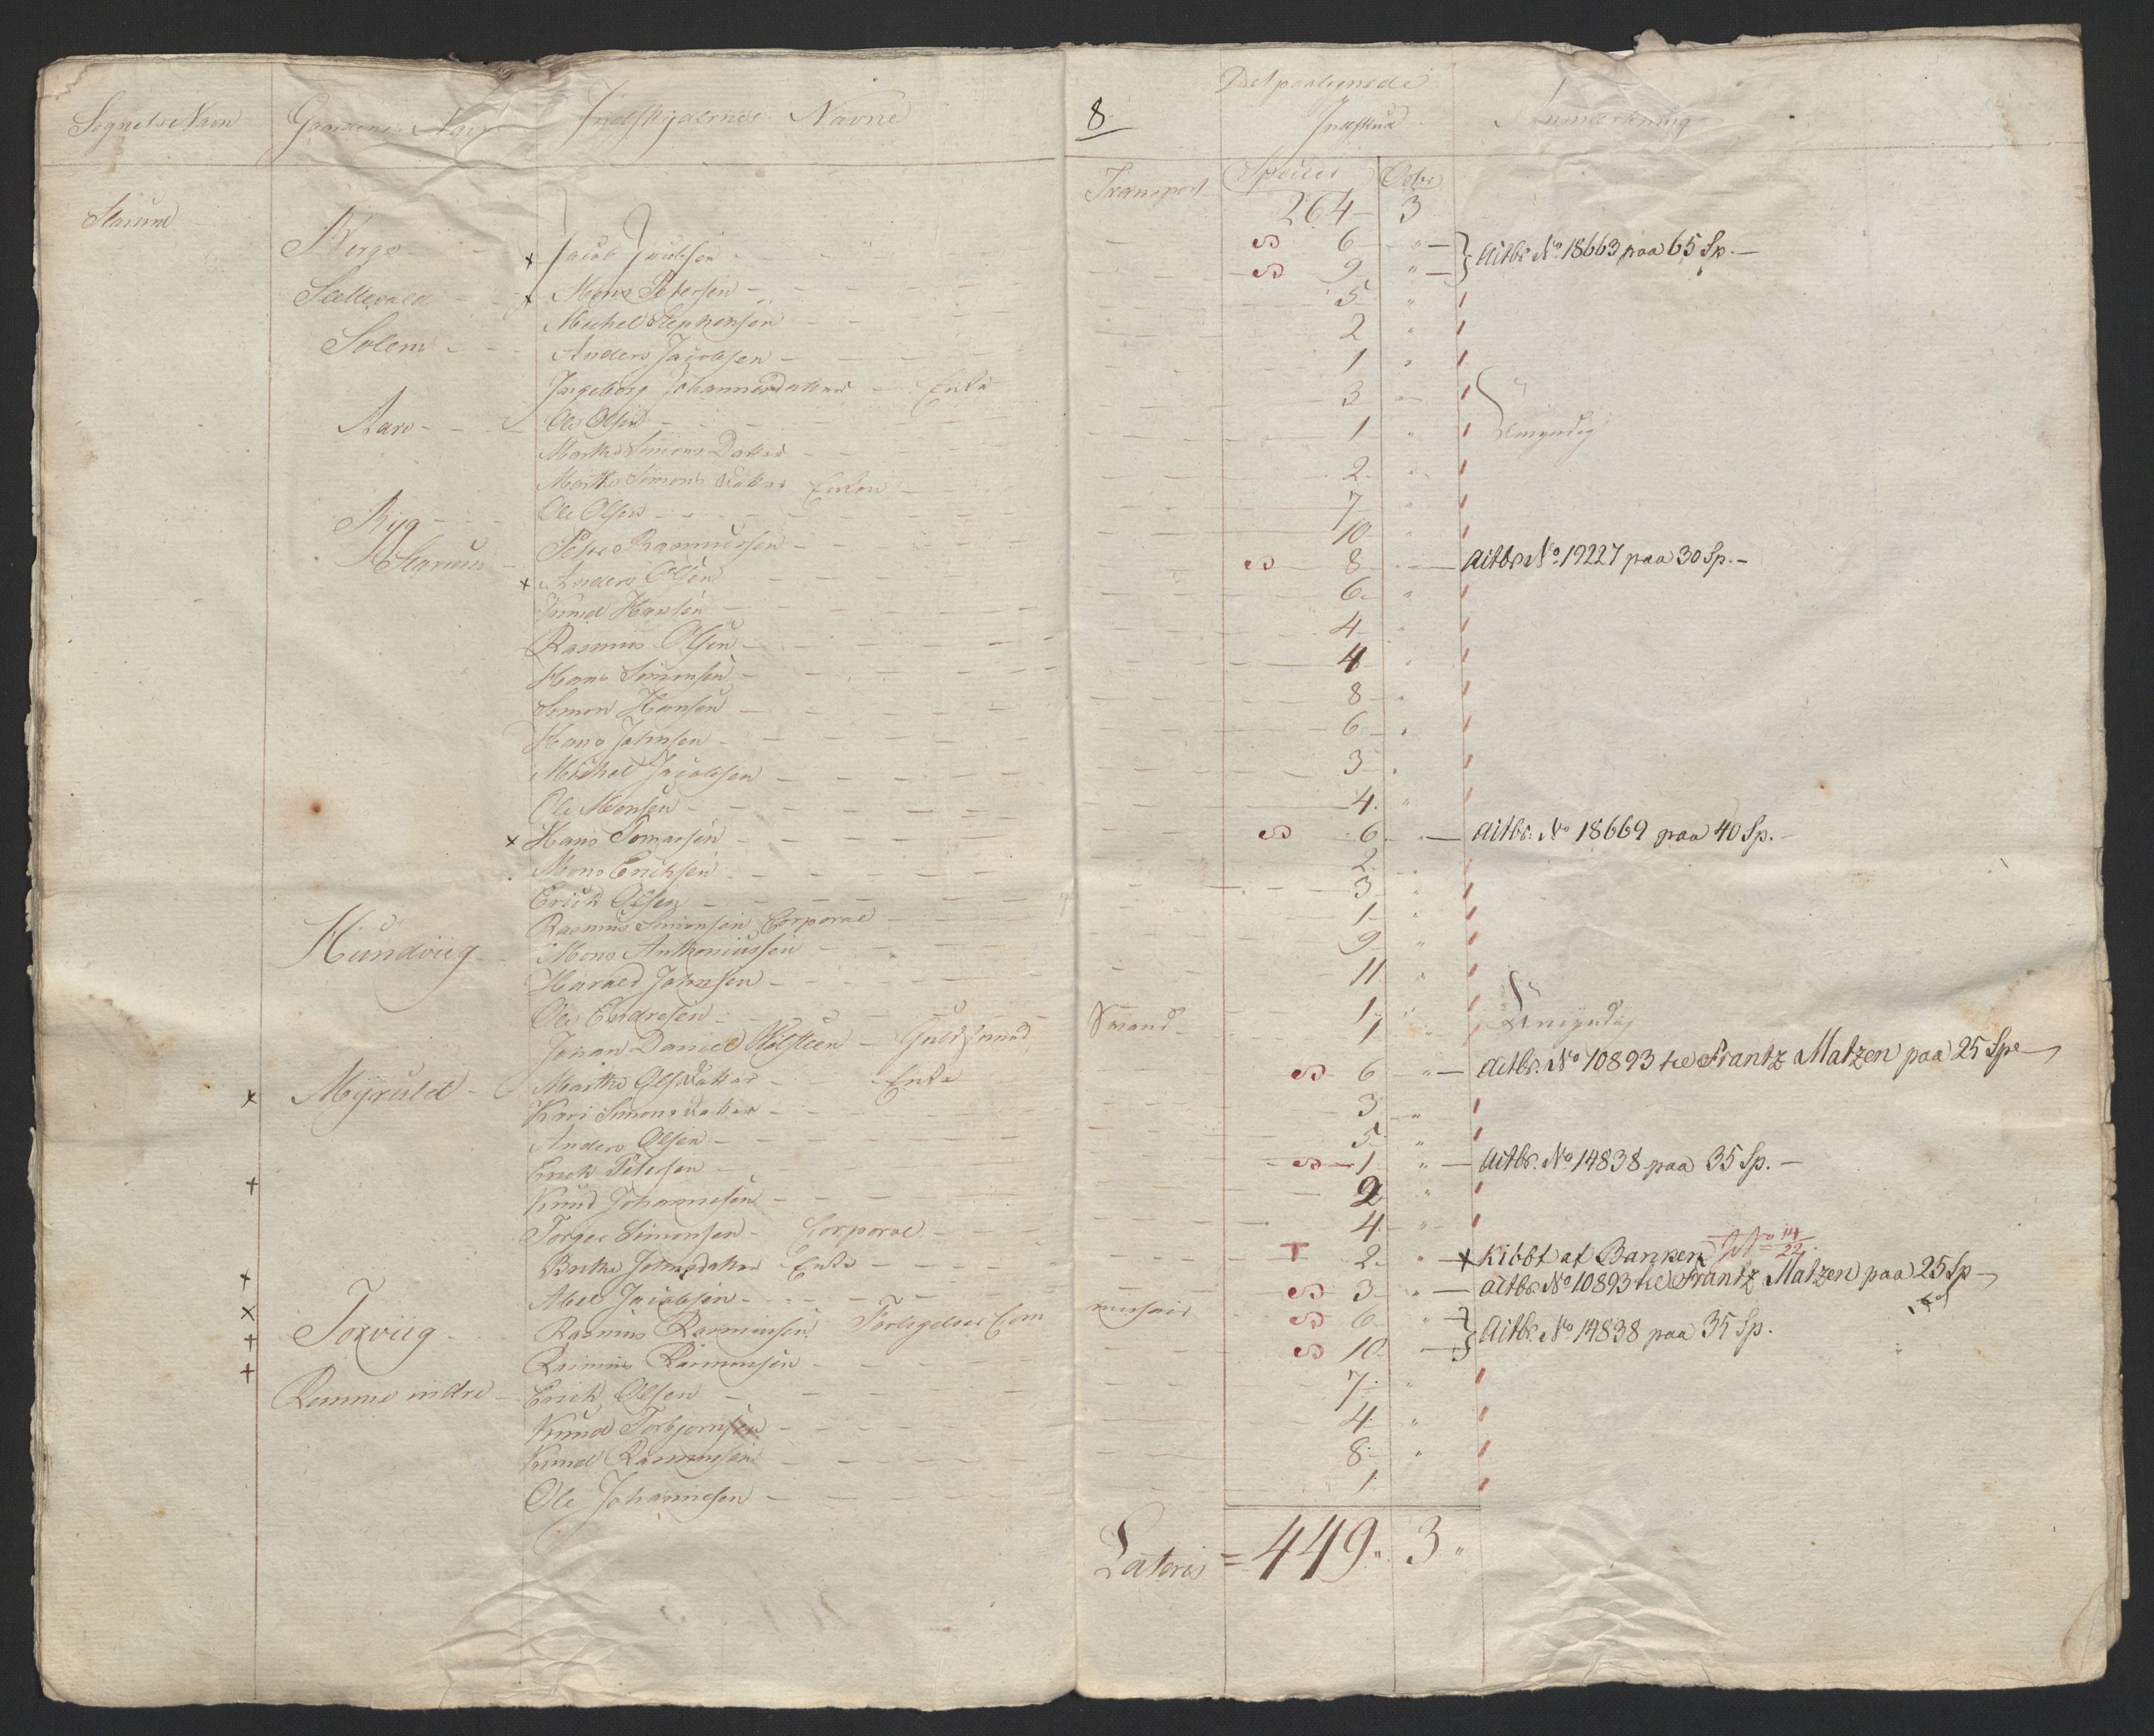 8
Sognets Navn Gaardenes Navn Indskydernes Navne Det paalignede Indskud Anmerkning
Transport Species Ort
264 3
Berge Jacob Jacobsen 6 " Actbr. No 18663 paa 65 Sp.
Sættevold Mons Petersen 9 "
Michel Stephensen 5 "
Solem Anders Jacobsen 2 "
Ingeborg Johannesdatter Enke 1 "
Aarø Ole Olsen 3 "
Marthe Simons Datter 1 " Umyndig
Marthe Simons Datter Enken 2 "
Ryg Ole Olsen 7 "
Peder Rasmussen 10 "
Anders Olsen 8 " Actbr. No 19227 paa 30 Sp.
Knud Hansen 6 "
Rasmus Olsen 4 "
Hans Simonsen 4 "
Simon Hansen 8 "
Hans Johnsen 6 "
Michel Jacobsen 3 "
Ole Monsen 4 "
Hans Tomassen 6 " Actbr. No 18669 paa 40 Sp.
Mons Erichsen 2 "
Erich Olsen 3 "
Rasmus Simonsen Corporal 1 "
Hundviig Mons Anthoniussen 9 "
Harald Johnsen 11 "
Ole Endresen 1 "
Johan Daniel Holsteen Guldsmed Svend 1 " Umyndig
Myruld Marthe Olsdatter Enke 6 " Actbr. No 10893 til Frantz Matzen paa 25 Spe
Kari Simonsdatter 3 "
Anders Olsen 5 "
Erich Petersen 1 " Actbr. No 14838 paa 35 Sp.
Knud Johannesen 2 "
Torger Simonsen Corporal 4 "
Berthe Johnsdatter Enke 2 " Kibbt af Banken
Abel Jacobsen 3 " Actbr. No 10893 til Frantz Matzen paa 25 Sp
Torviig Rasmus Rasmussen Forligelses Commissair 6 " Actbr. No 14838 paa 35 Sp.
Rasmus Rasmussen 10 "
Remme indre Erich Olsen 7 "
Knud Torbjørnsen 4 "
Knud Rasmussen 8 "
Ole Johannesen 1
Lateris = 449 " 3 "